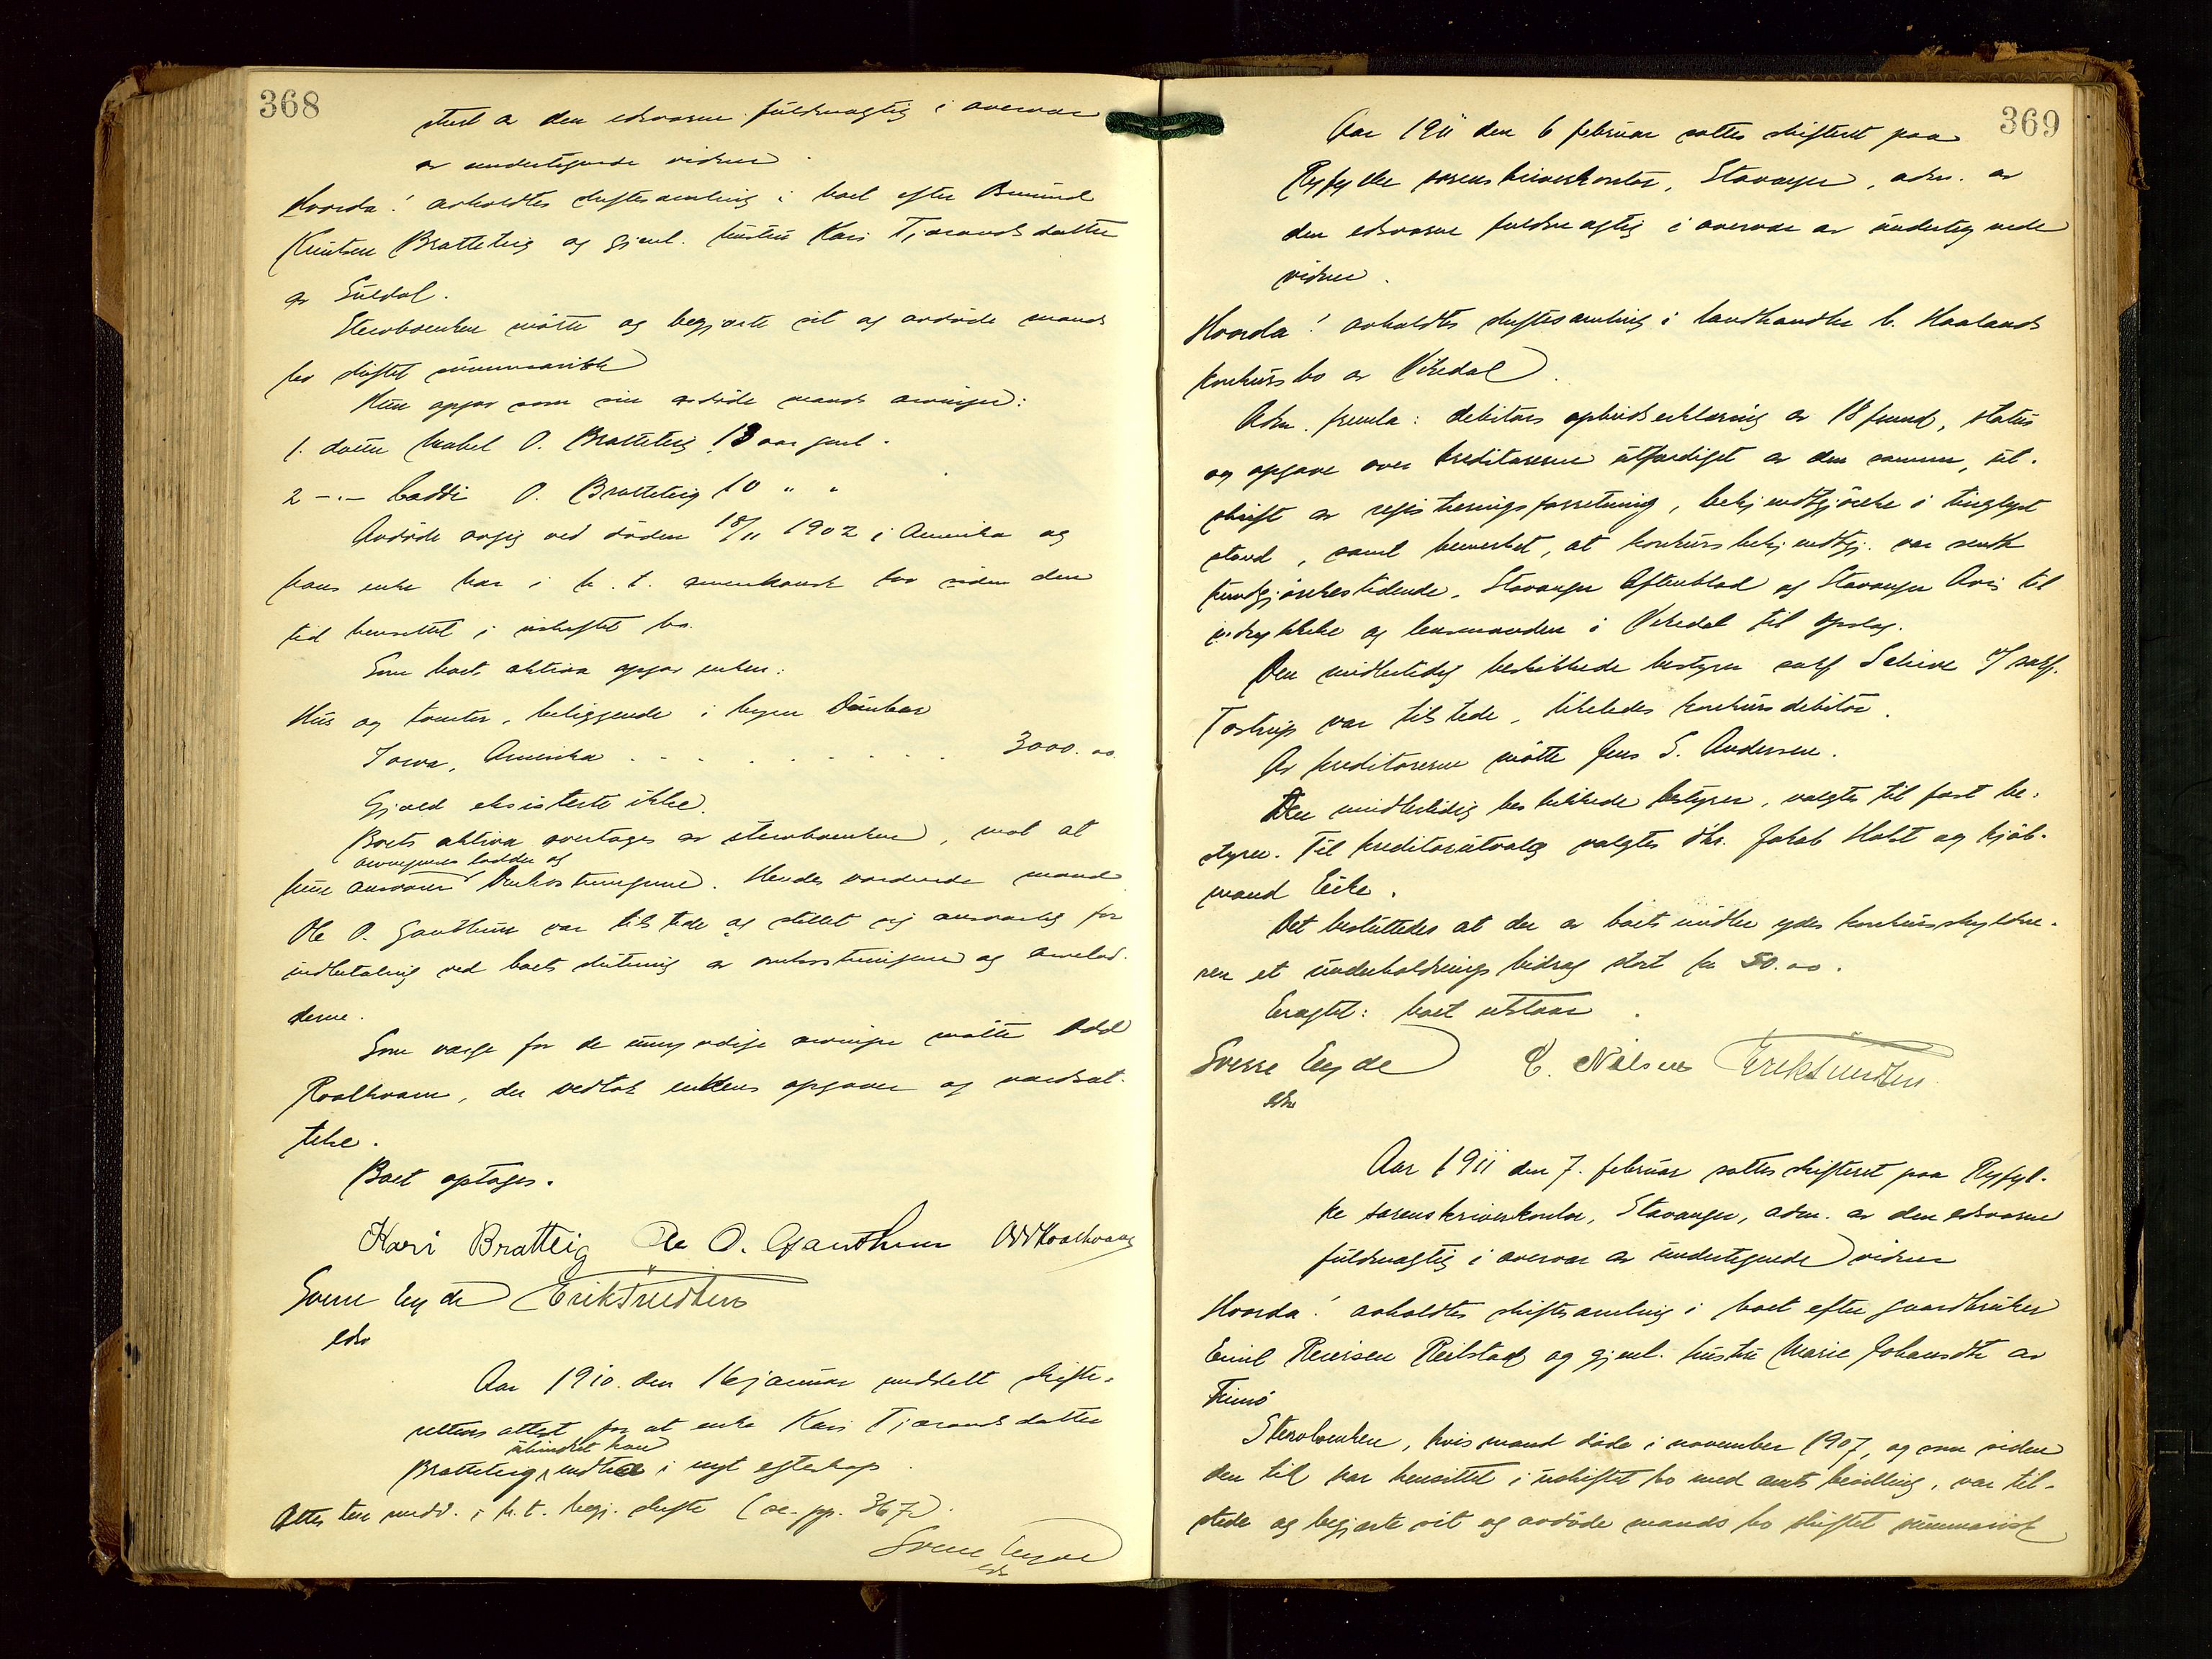 368
av den edsvorne fuldmægtig i overvær
av undertegnede vidner.
Hvorda! avholdtes skiftesamling i boet efter
Knutsen Bratteteig og gjenl. hustru Kari Tjerandsdatter
av Suldal.
Stervboenken møtte og begjærte sit og avdøde mands
bo skiftet summarisk
Hun opgav som sin avdøde mands arvinger:
1. datter Mabel O. Bratteteig 13 aar gml.
2 -.- O. Bratteteig 10 " "
Avdøde avgik ved døden 18/11 1902 i Amerika og
hans enke har i h. t. amerikansk lov siden den
tid hensittet i uskiftet bo.
Som boets aktiva opgav enken:
Hus og tomter, beliggende i byen Dunbar
Iowa, Amerika . . . . . . . . . 3000.00
Gjæld eksisterte ikke.
Boets aktiva overtages av stervboenken, mot at
arvingernes lodder og
hun ansvarer omkostningerne. Hendes værende mand
Ole O. Gauthun var tilstede og stillet sig ansvarlig for
indbetaling ved boets slutning av omkostningerne og arvelod-
derne.
Som værge for de umyndige arvinger møtte Odd
Roalkvam, der vedtok enkens opgaver og værdsæt-
telse.
Boet optages.
Kari Bratteig Ole O. O. Gauthun Odd Roalkvam
Sverre Eyde Erik Knudsen
edsv
Aar 1910. den 16 januar meddelt skifte-
rettens attest for at enke Kari Tjerandsdatter
uhindret kan
Bratteteig indtræ i nyt egteskap.
Attesten medd. i h.t. begj. skifte (se pp. 367).
Sverre Eyde
edsv
369
Aar 1911 den 6 februar sattes skifteret paa
Ryfylke sorenskriverkontor, Stavanger, adm. av
den edsvorne fuldmægtig i overvær av undertegnede
vidner.
Hvorda! avholdtes skiftesamling i landhandler C. Haalands
konkursbo av Vikedal.
Adm. fremla: debitors opbudserklæring av 18 f.mnd, status
og opgave over kreditorerne utfærdiget av den samme, ut-
skrift av registreringsforretning, bekjendtgjørelse i tinglyst
stand, samt bemerket, at konkursbekjendtgj. var sendt
kundgjørelsestidende, Stavanger Aftenblad og Stavanger Avis til
indrykkelse og lensmanden i Vikedal til opslag.
Den midlertidig beskikkede bestyrer sakf. Schive v/ sakf.
Tostrup var tilstede, likeledes konkursdebitor.
Av kreditorerne møtte Jens S. Andersen.
Den midlertidig beskikkede bestyrer, valgtes til fast be-
styrer. Til kreditorutvalg valgtes hr. Jakob Holst og kjøb-
mand Eike.
Det besluttedes at der av boets midler ydes konkursskyldne-
ren et underholdnings bidrag stort kr 50.00.
Eragtet: boet utstaar.
Sverre Eyde C. Nilsen Erik Knudsen
edsv
Aar 1911 den 7. februar sattes skifteret paa Ryfyl-
ke sorenskriverkontor, Stavanger, adm. av den edsvorne
fuldmægtig i overvær av undertegnede vidner
Hvorda! avholdtes skiftesamling i boet efter gaardbruker
Emil Reiersen Reilstad og gjenl. hustru Marie Johansdtr av
Finnø
Stervboenken, hvis mand døde i november 1907, og som siden
den tid har hensittet i uskiftet bo med amts bevilling, var til-
stede og begjærte sit og avdøde mands bo skiftet summarisk